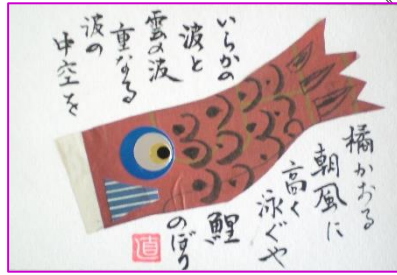 いらかの
波と
雲の波
重なる
波の
中空を
橘かおる
朝風に
高く
泳ぐや
鯉
のぼり
直